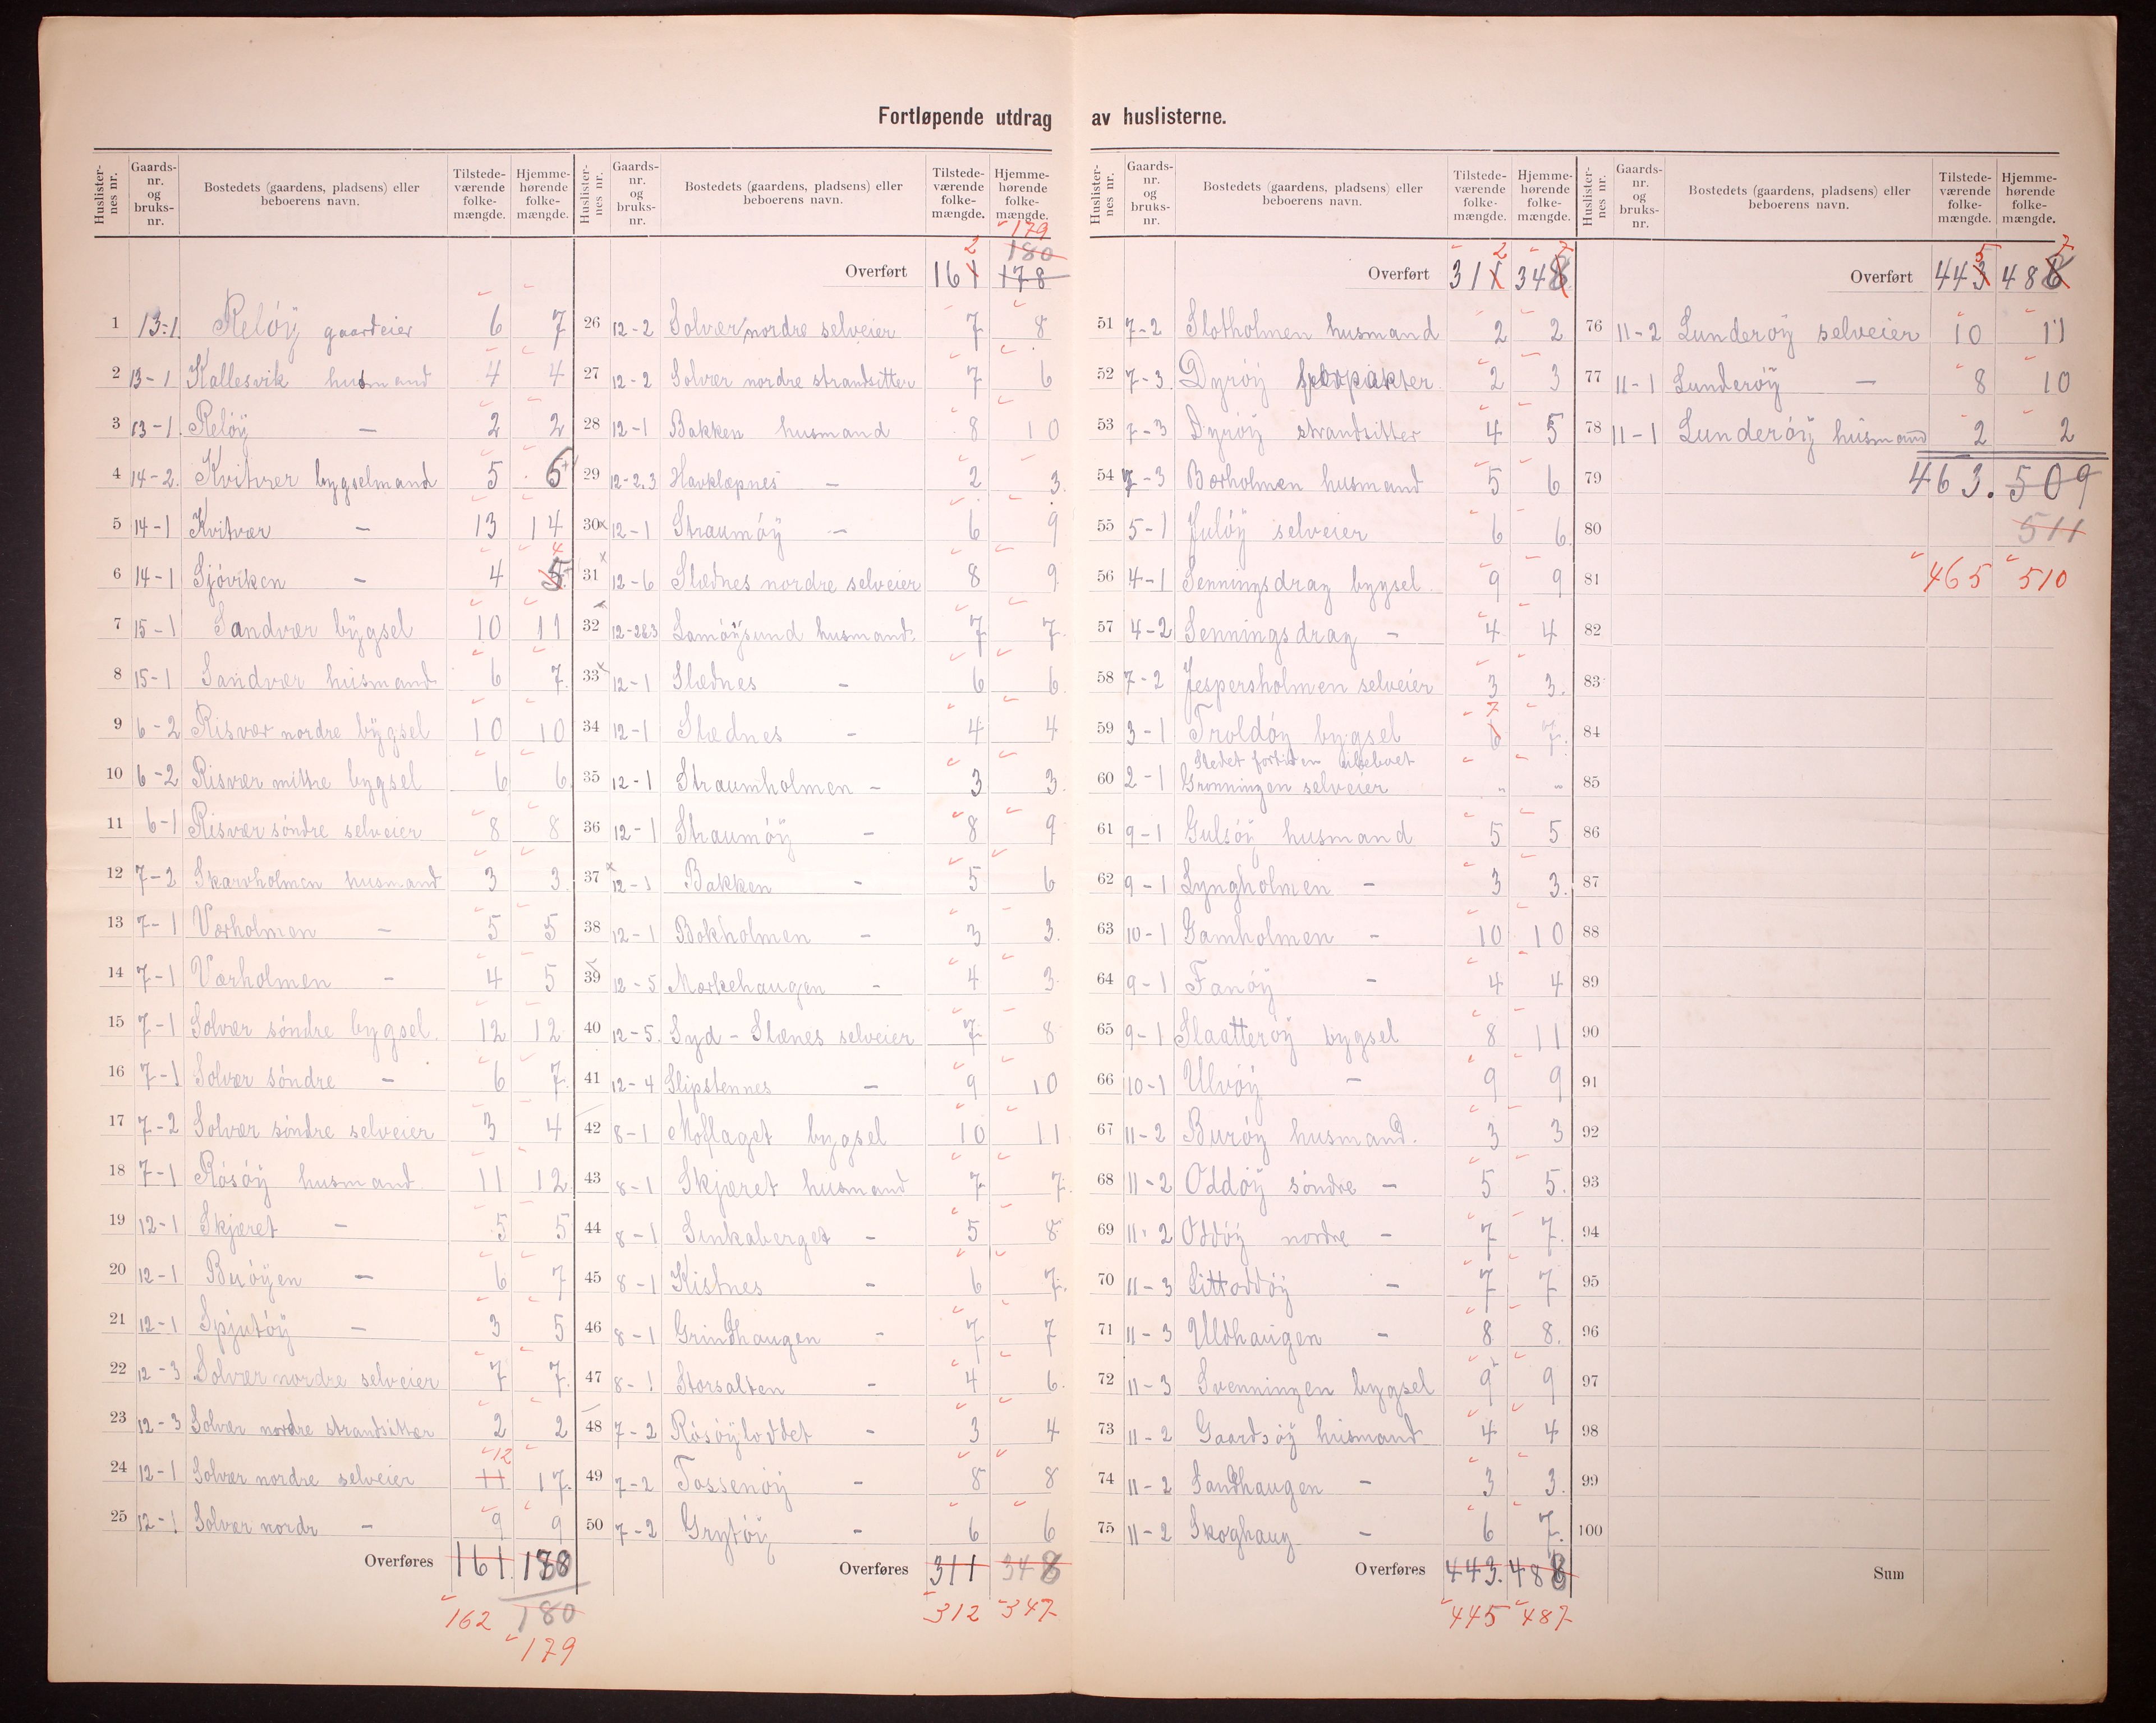 Fortløpende utdrag av huslisterne.
Huslister-nes nr. Gaards-nr. og bruks-nr. Bostedets (gaardens, pladsens) eller beboerens navn. Tilstede-værende folke-mængde. Hjemme-hørende folke-mængde.
1 13-1. Relöÿ gaardeier 6 7
2 13-1 Kallesvik husmand 4 4
3 13-1. Relöÿ — 2 2
4 14-2. Kvitvær bygselmand 5 6
5 14-1 Kvitvær — 13 14
6 14-1 Sjöviken — 4 5 4
7 15-1 Sandvær bÿgsel 10 11
8 15-1 Sandvær husmand 6 7.
9 6-2 Risvær nordre bÿgsel 10 10
10 6-2 Risvær mittre bygsel 6 6
11 6-1 Risvær söndre selveier 8 8
12 7-2 Skarvholmen husmand 3 3
13 7-1 Værholmen — 5 5
14 7-1 Værholmen — 4 5
15 7-1 Solvær söndre bygsel. 12 12
16 7-1 Solvær söndre — 6 7.
17 7-2 Solvær söndre selveier 3 4
18 7-1 Rösöÿ husmand 11 12
19 12-1 Skjæret — 5 5
20 12-1 Buöÿen — 6 7
21 12-1 Spjutöÿ — 3 5
22 12-3 Solvær nordre selveier 7 7.
23 12-3 Solvær nordre strandsitter 2 2
24 12-1 Solvær nordre selveier 11 12 17.
25 12-1 Solvær nordr — 9 9
Overføres 161. 178
162 180
179
Huslister-nes nr. Gaards-nr. og bruks-nr. Bostedets (gaardens, pladsens) eller beboerens navn. Tilstede-værende folke-mængde. Hjemme-hørende folke-mængde.
2 179
180
Overført 161 178
26 12-2 Solvær nordre selveier 7 8
27 12-2 Solvær nordre strandsitter 7 6
28 12-1 Bakken husmand 8 10
29 12-2.3 Havklapnes — 2 3.
30 12-1 Straumöÿ — 6 9
31 12-6 Slædnes nordre selveier 8 9
32 12-2&3 Lamöÿsund husmand 7 7.
33 12-1 Slædnes — 6 6
34 12-1 Slædnes — 4 4
35 12-1 Straumholmen — 3 3.
36 12-1 Straumöÿ — 8 9
37 12-1 Bakken — 5 6
38 12-1 Bokholmen — 3 3.
39 12-5 Mørkehaugen — 4 3.
40 12-5. Syd-Slænes selveier 7 8
41 12-4 Slipstennes — 9 10
42 8-1 Moflaget bygsel 10 11
43 8-1 Skjæret husmand 7 7.
44 8-1 Sinkaberget — 5 8
45 8-1 Kistnes — 6 7.
46 8-1 Grindhaugen — 7 7
47 8-1 Storsalten — 4 6.
48 7-2 Rösöÿloddet — 3 4
49 7-2 Tossenöÿ — 8 8
50 7-2 Grytöÿ — 6 6
Overføres 311 348
312 347
Huslister-nes nr. Gaards-nr. og bruks-nr. Bostedets (gaardens, pladsens) eller beboerens navn. Tilstede-værende folke-mængde. Hjemme-hørende folke-mængde.
2 7
Overført 311 348
51 7-2 Slotholmen husmand 2 2
52 7-3. Dyröÿ forpakter 2 3
53 7-3 Dyröÿ strandsitter 4 5
54 7-3 Børholmen husmand 5 6
55 5-1 Julöÿ selveier 6 6.
56 4-1 Senningsdrag bygsel. 9 9
57 4-2 Senningsdrag — 4 4
58 7-2 Jespersholmen selveier 3 3.
59 3-1 Troldöy bygsel 6 7 7.
Stedet fortiden ubeboet
60 2-1 Grønningen selveier " "
61 9-1 Gulsöÿ husmand 5 5
62 9-1 Lyngholmen — 3 3.
63 10-1 Gamholmen — 10 10
64 9-1 Fanöÿ — 4 4
65 9-1 Slaatteröÿ bygsel 8 11
66 10-1 Ulvöÿ — 9 9
67 11-2 Buröy husmand. 3 3
68 11-2 Oddöÿ söndre — 5 5.
69 11-2 Oddöÿ nordre — 7 7.
70 11-3 Littoddöÿ — 7 7
71 11-3 Uldhaugen — 8 8.
72 11-3 Svenningen bygsel 9 9
73 11-2 Gaardsöÿ husmand 4 4
74 11-2 Sandhaugen — 3 3.
75 11-2 Skoghaug — 6 7.
Overføres 443. 488
445 487
Huslister-nes nr. Gaards-nr. og bruks-nr. Bostedets (gaardens, pladsens) eller beboerens navn. Tilstede-værende folke-mængde. Hjemme-hørende folke-mængde.
5 7
Overført 443 486
76 11-2 Lunderöy selveier 10 11
77 11-1 Lunderöÿ — 8 10
78 11-1 Lunderöÿ husmand 2 2
79 463. 509
80 511
81 465 510
82
83
84
85
86
87
88
89
90
91
92
93
94
95
96
97
98
99
100
Sum